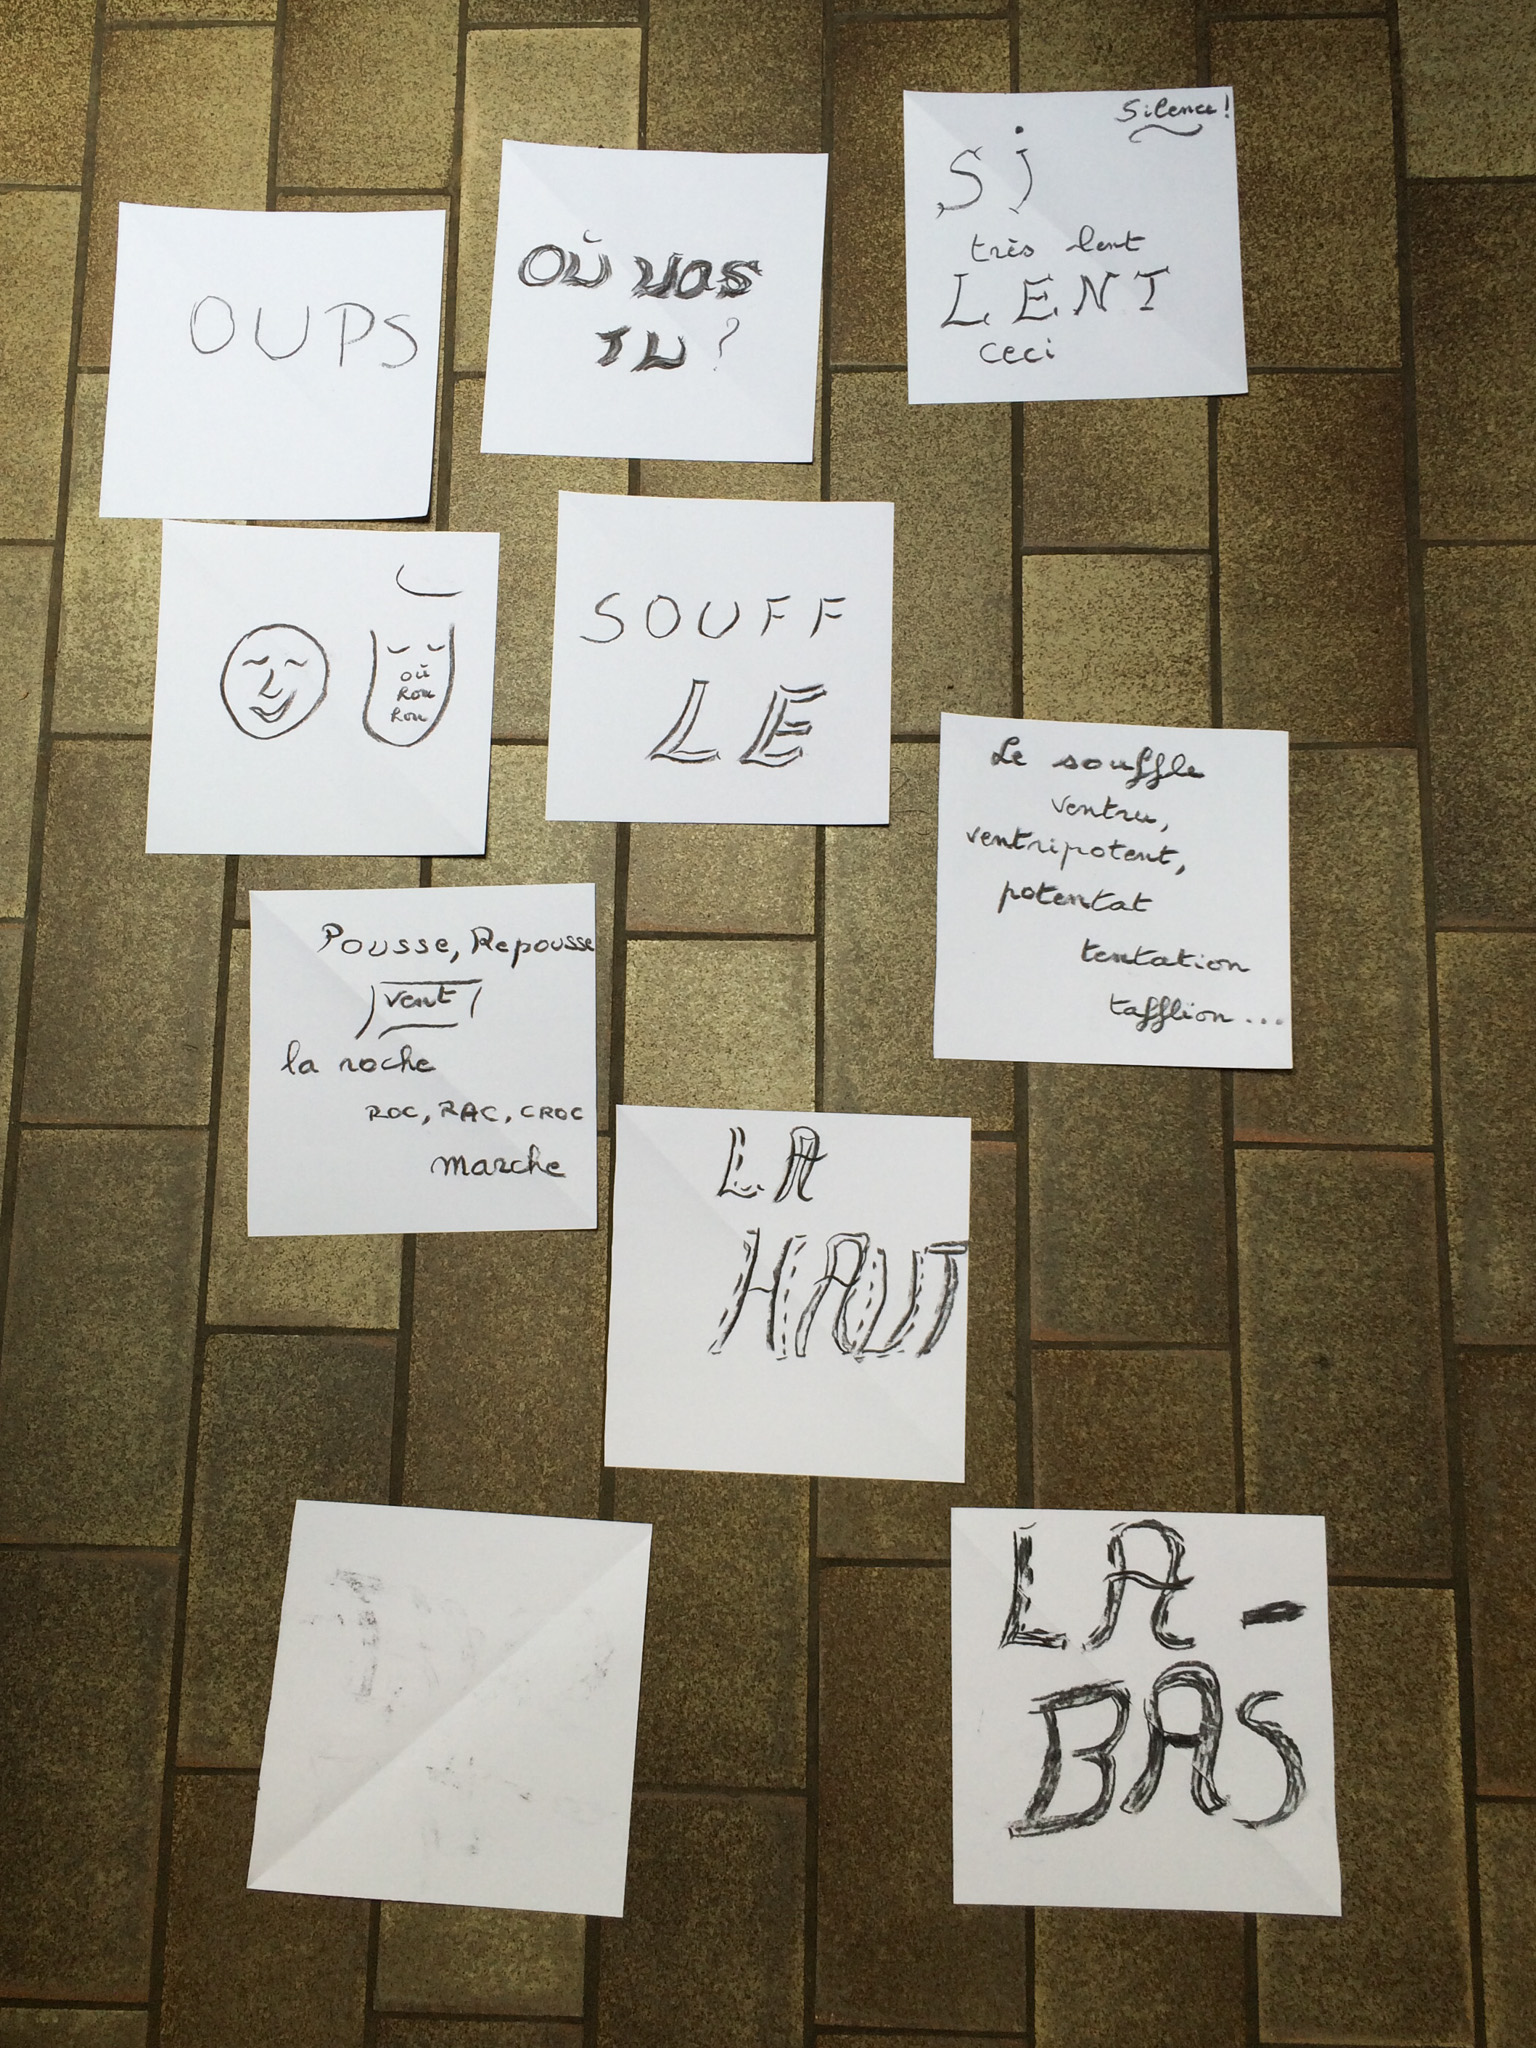 OUPS
OÙ VAS
TU ?
Silence !
Si
très lent
LENT
ceci
OÙ
où
Ron
Ron
SOUFF
LE
Le souffle
ventru,
ventripotent,
potentat
tentation
tafflion...
Pousse, Repousse
vent
la roche
ROC, RAC, CROC
marche
LA
HAUT
LA-
BAS